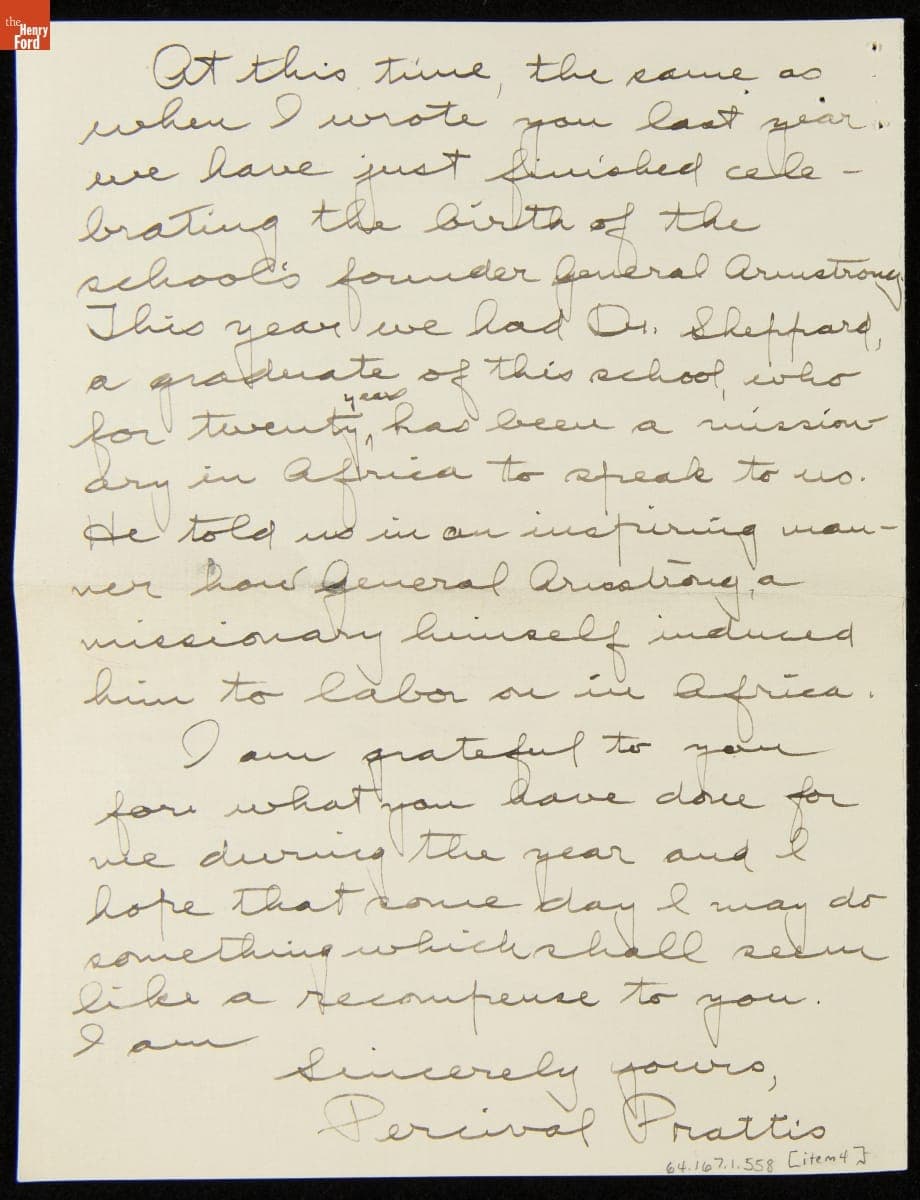 the
Henry
Ford
At this time, the same as
when I wrote you last year.
we have just finished cele-
brating the birth of the
school's founder General Armstrong.
This year we had Dr. Sheppard,
a graduate of this school, who
years
for twenty, has been a mission
ary in Africa to speak to us.
He told us in an inspiring man-
ner how General Armstrong, a
missionary himself induced
him to labor on in Africa.
I am grateful to you
for what you have done for
me during the year and I
hope that some day I may do
something which shall seem
like a recompense to you.
I am
Sincerely yours,
Percival Prattis
64.167.1.558 [item 4]